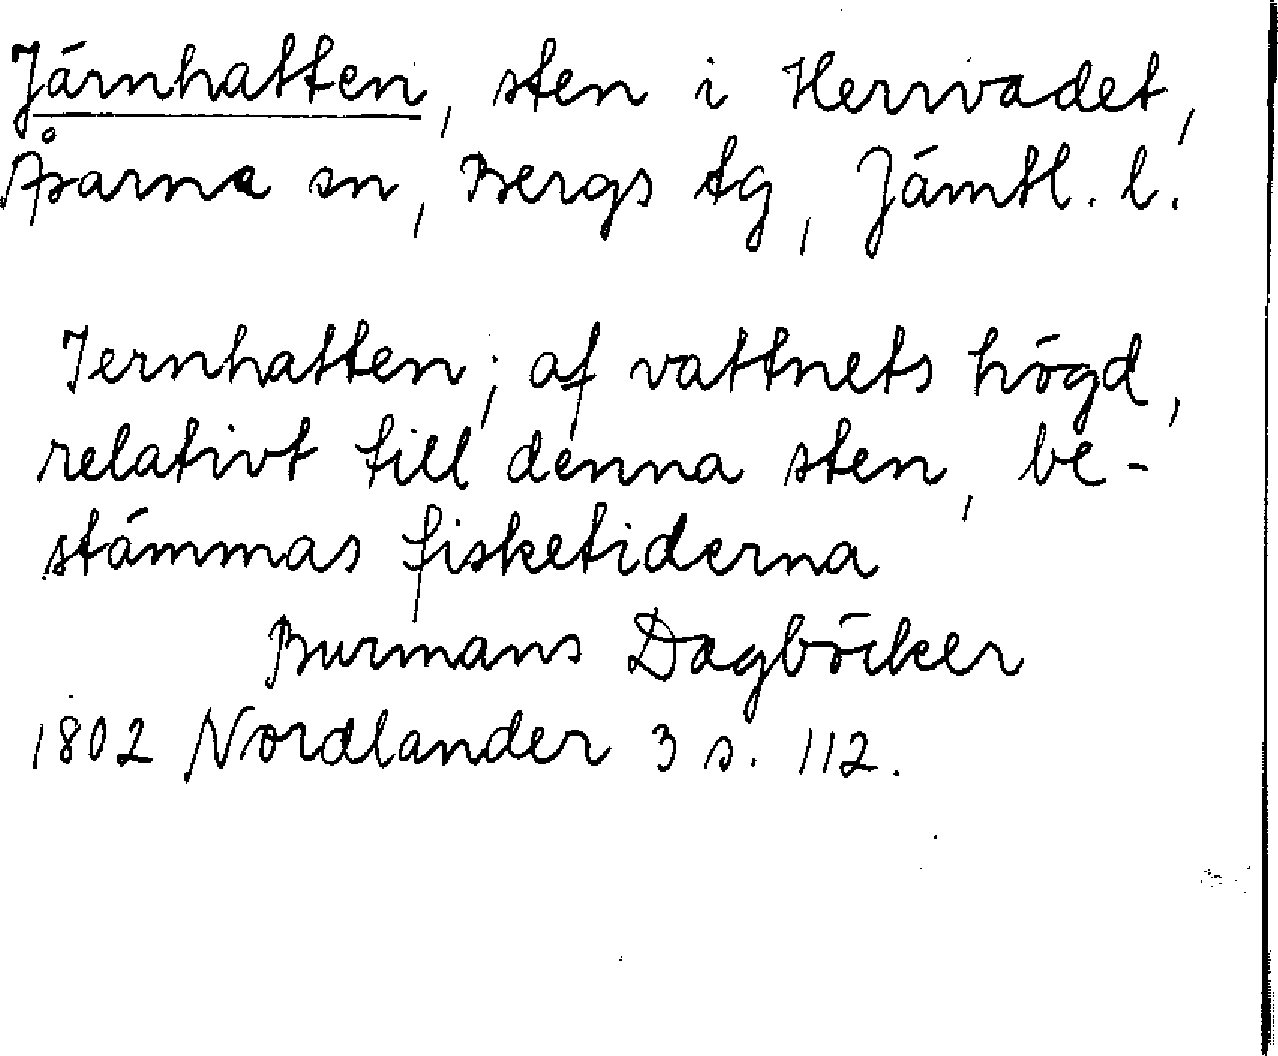 Järnhatten, sten i Herrvadet,
Åsarna sn, Bergs tg, Jämtl. l.
Jernhatten; af vattnets högd,
relativt till denna sten, be-
stämmas fisketiderna
Burmans Dagböcker
1802 Nordlander 3 s. 112.